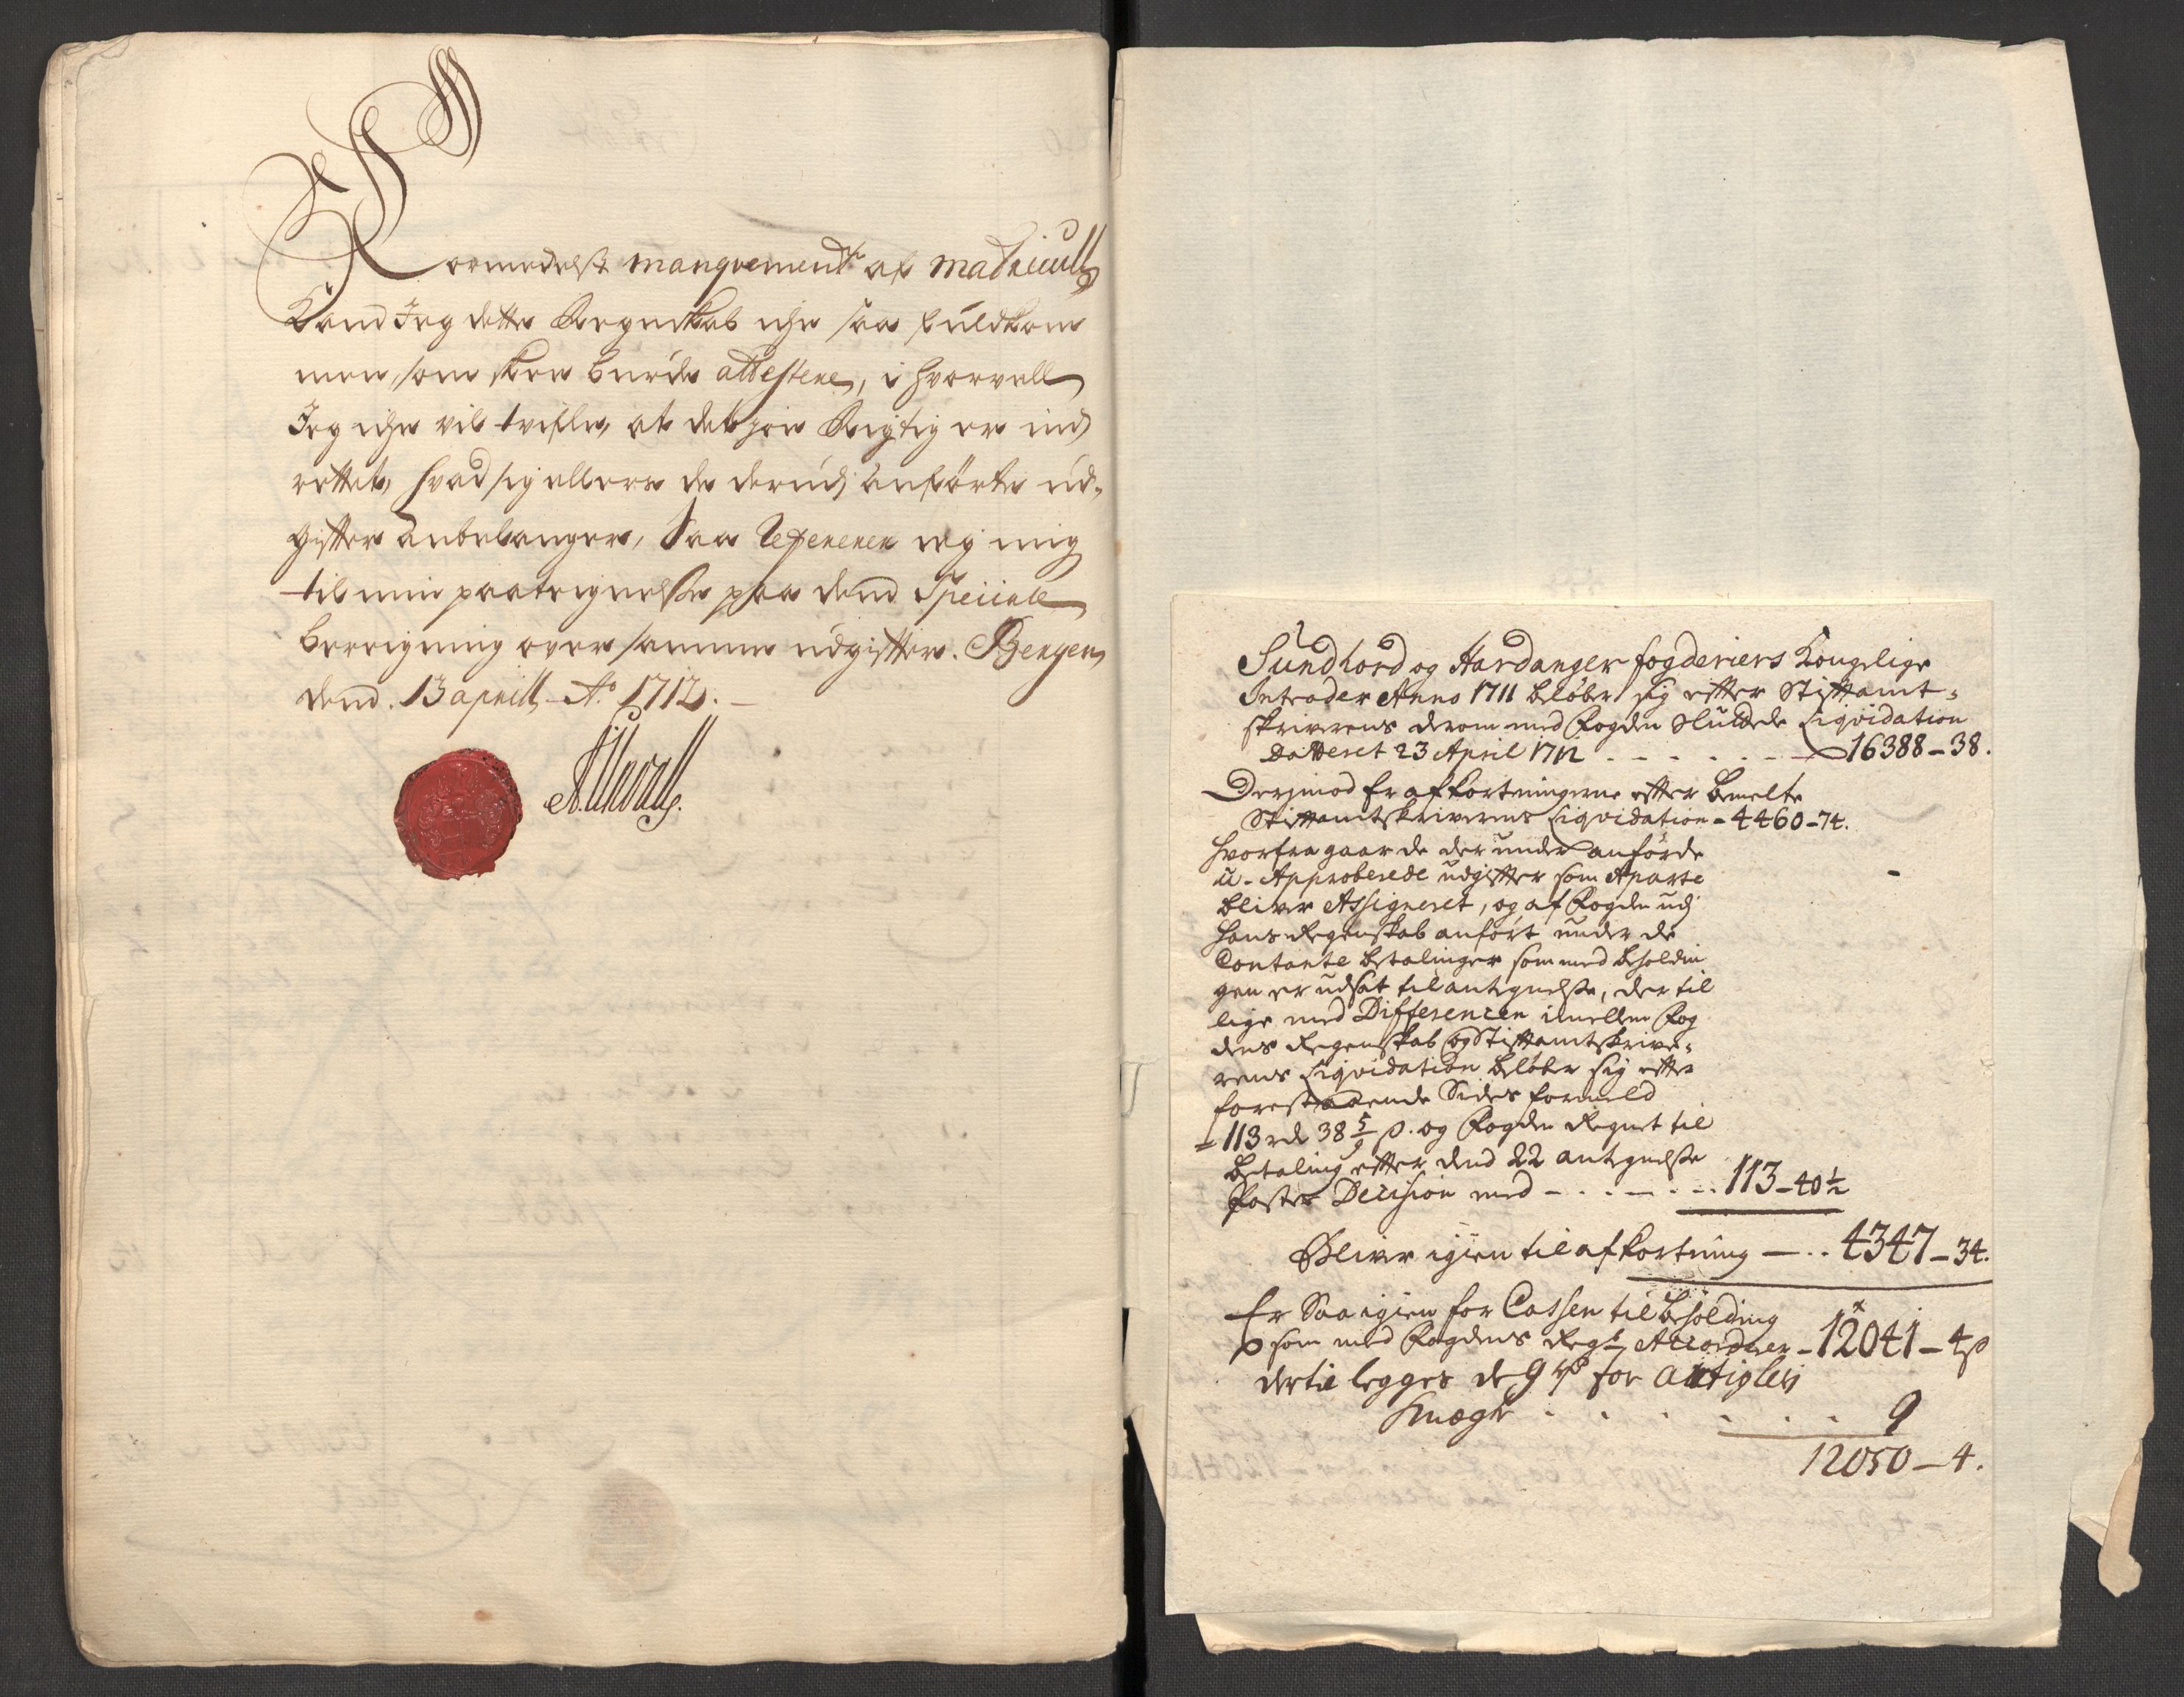 Formedelst mangvement af matricull
Kand Jeg dette Regnskab iche saa fuldkom
men, som skee burde attestere, i hvorvell
Jeg iche vil tvifle, at det jo Rigtig er ind
rettet, hvad sig ellers de derudj anførte ud-
gifter anbelanger, saa Refererer ieg mig
til min paateignelse paa dend Speciale
bereigning over samme udgifter. Bergen
dend. 13 aprill, Ao 1712.
Sundhord og Hardanger fogderiers Kongelige
Intrader Anno 1711 beløber sig efter Stiftamt-
skriverens derom med Fogden sluttede Liqvidation
Datteret 23 April 1712 . - - . . - - 16388 - 38.
Derimod Er afkortningerne efter bemelte
Stiftamtskriverens Liqvidation - 4460 - 74.
hvorfra gaar de der under anførde
u-Approberede udgifter som Aparte
bliver Assigneret, og af Fogden udj
hans Regenskab anført under de
Contante betalinger som med beholdin
gen er udsat til antegnelse, der til
lige med Differencen imellem Fog
dens Regenskab og Stiftamtskrive-
rens Liqvidation beløber sig efter
forestaaende Sides formeld
113 rd 38 5/9 s. og Fogden Regnet til
betaling efter dend 22 antegnelse
Postes Decision med - . . - . - .. 113 - 40 1/2
Bliver igien til afkortning - . . 4347 - 34.
Er Saa igien for Cassen til beholding
som med Fogdens Regsk Accorderer - 12041 - 4 s
dertil legges de 9 rd for
Knegte . . . . . . 9
12050 - 4.